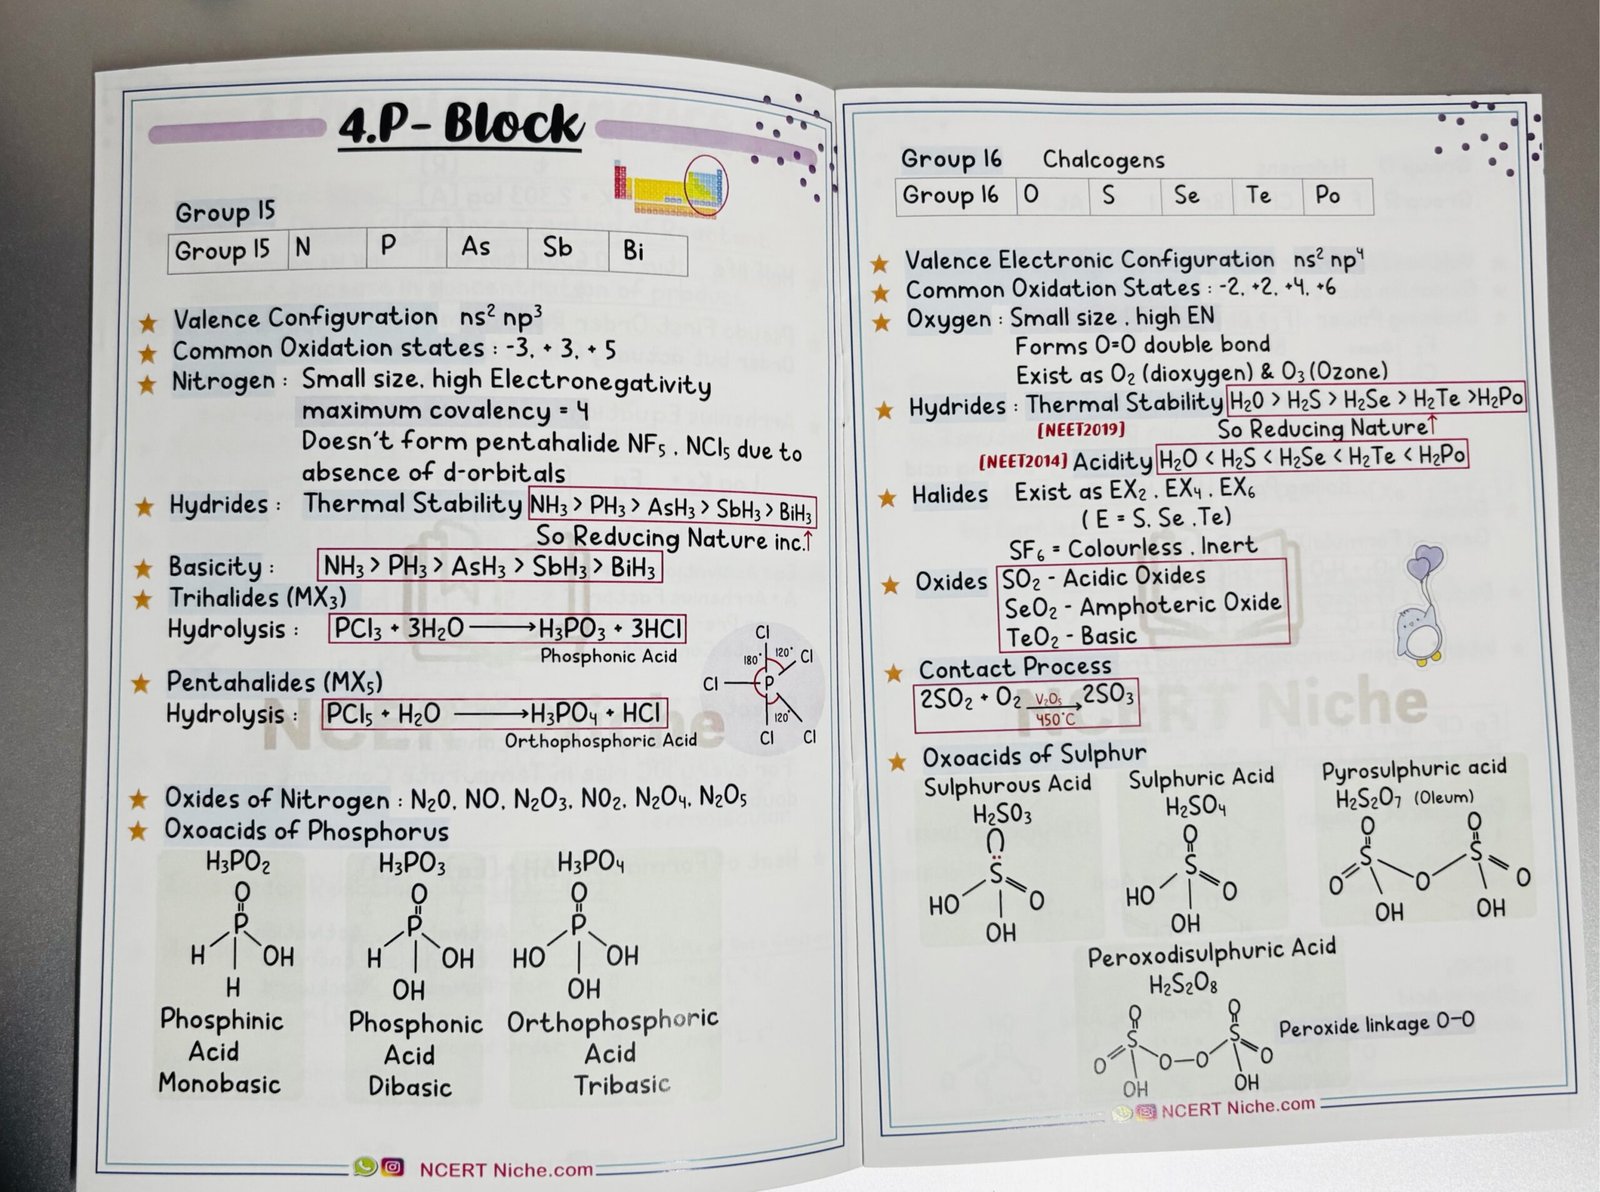 4.P- Block
Group 15
Group 15 N P As Sb Bi
Valence Configuration ns² np³
Common Oxidation states : -3, +3, +5
Nitrogen : Small size, high Electronegativity
maximum covalency = 4
Doesn't form pentahalide NF₅ , NCl₅ due to
absence of d-orbitals
Hydrides : Thermal Stability NH₃ > PH₃ > AsH₃ > SbH₃ > BiH₃
So Reducing Nature inc.↑
Basicity : NH₃ > PH₃ > AsH₃ > SbH₃ > BiH₃
Trihalides (MX₃)
Hydrolysis : PCl₃ + 3H₂O ⟶ H₃PO₃ + 3HCl
Phosphonic Acid
Pentahalides (MX₅)
Hydrolysis : PCl₅ + H₂O ⟶ H₃PO₄ + HCl
Orthophosphoric Acid
Cl
180° 120° Cl
Cl P
120°
Cl Cl
Oxides of Nitrogen : N₂O, NO, N₂O₃, NO₂, N₂O₄, N₂O₅
Oxoacids of Phosphorus
H₃PO₂ H₃PO₃ H₃PO₄
O O O
P P P
H OH H OH HO OH
H OH OH
Phosphinic Phosphonic Orthophosphoric
Acid Acid Acid
Monobasic Dibasic Tribasic
NCERT Niche.com
NCERT Niche
Group 16 Chalcogens
Group 16 O S Se Te Po
Valence Electronic Configuration ns² np⁴
Common Oxidation States : -2, +2, +4, +6
Oxygen : Small size , high EN
Forms O=O double bond
Exist as O₂ (dioxygen) & O₃ (Ozone)
Hydrides : Thermal Stability H₂O > H₂S > H₂Se > H₂Te >H₂Po
[NEET2019] So Reducing Nature↑
[NEET2014] Acidity H₂O < H₂S < H₂Se < H₂Te < H₂Po
Halides Exist as EX₂ , EX₄ , EX₆
( E = S, Se ,Te)
SF₆ = Colourless , Inert
Oxides SO₂ - Acidic Oxides
SeO₂ - Amphoteric Oxide
TeO₂ - Basic
Contact Process
2SO₂ + O₂ ⟶ 2SO₃
V₂O₅
450°C
NCERT Niche
Oxoacids of Sulphur
Sulphurous Acid Sulphuric Acid Pyrosulphuric acid
H₂SO₃ H₂SO₄ H₂S₂O₇ (Oleum)
O O O O
S S S S
HO O HO O O O O
OH OH OH OH
Peroxodisulphuric Acid
H₂S₂O₈
O O Peroxide linkage O-O
S S
O O-O O
OH OH
NCERT Niche.com